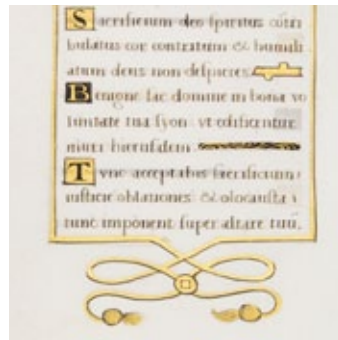 Sacrificium deo spiritus con
bulatus cor contritum & humili
atum deus non despicies
Benigne fac domine in bona vo
luntate tua syon vt edificentur
muri hierusalem
Tunc acceptabis sacrificium
iusticie oblationes & olocausta
tunc imponent super altare tuu.